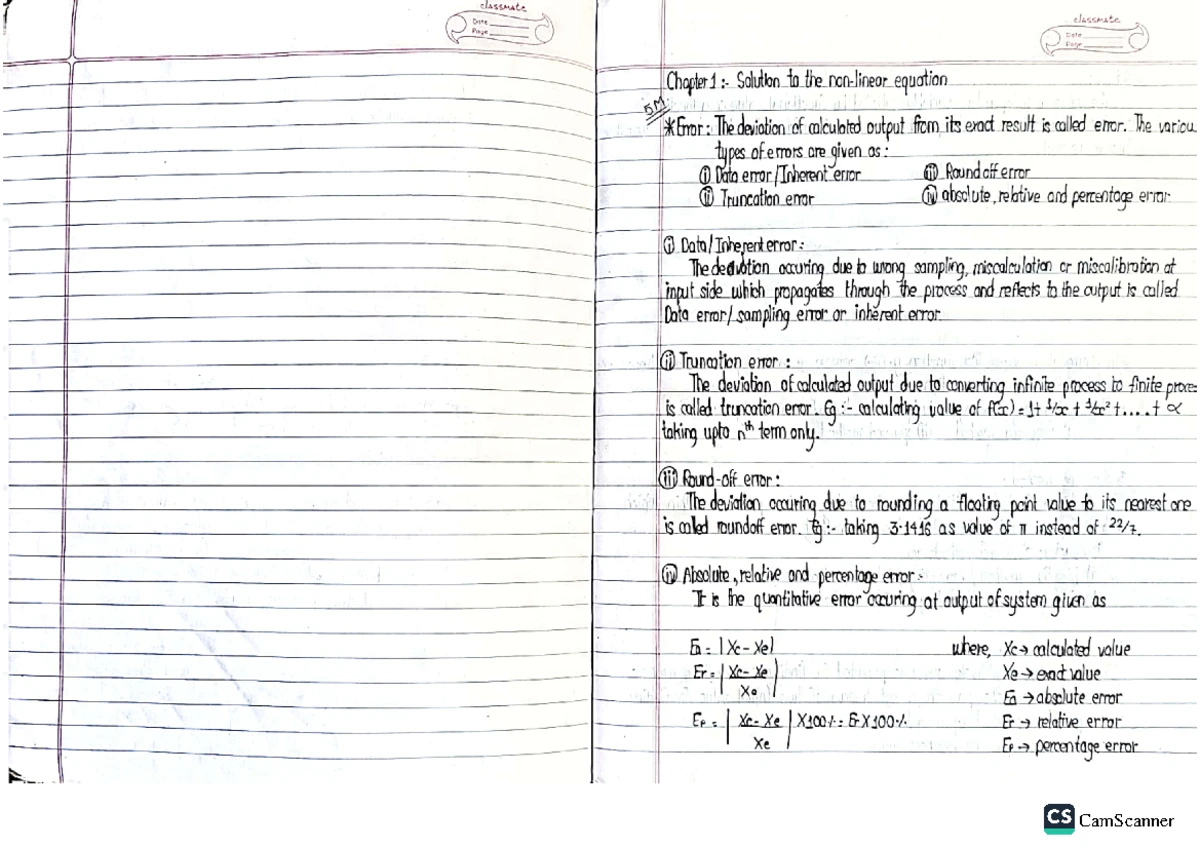 classmate
Date
Page
classmate
Date
Page
Chapter 1 :- Solution to the non-linear equation
5M
* Error : The deviation of calculated output from its exact result is called error. The variou
types of errors are given as :
(i) Data error / Inherent error (iii) Round off error
(ii) Truncation error (iv) absolute, relative and percentage error
(i) Data / Inherent error :
The deviation occuring due to wrong sampling, miscalculation or miscalibration at
input side which propagates through the process and reflects to the output is called
Data error / sampling error or inherent error.
(ii) Truncation error :
The deviation of calculated output due to converting infinite process to finite proces
is called truncation error. Eg :- calculating value of f(x) = 1 + 1/x + 1/x² + .... + ∝
taking upto nth term only.
(iii) Round-off error :
The deviation occuring due to rounding a floating point value to its nearest one
is called roundoff error. Eg :- taking 3.1416 as value of π instead of 22/7.
(iv) Absolute, relative and percentage error :
It is the quantitative error occuring at output of system given as
Ea = |Xc - Xe| where, Xc → calculated value
Er = | Xc - Xe / Xe | Xe → exact value
Ea → absolute error
Ep = | Xc - Xe / Xe | X 100% = Er X 100% Er → relative error
Ep → percentage error
CS CamScanner